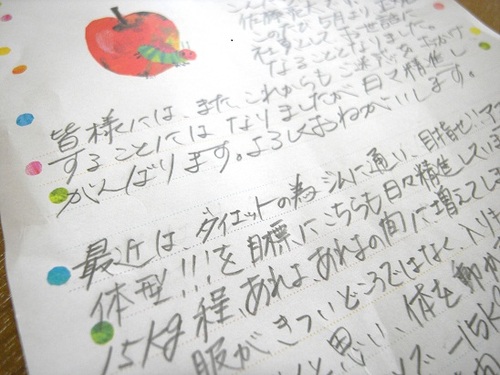 こん
佐藤
この度5月より
社員としてお世話に
なることになりました。
皆様には、また、これからもご迷惑をおかけ
することにはなりましたが、日々精進し
がんばります。よろしくおねがいします。
最近は、ダイエットの為ジムに通い、目指せ
体型!!!を目標にこちらも日々精進しています
15kg程、あれよあれよの間に増えてし
服がきついどころではなく、入り
と思い、体を動か
-15k